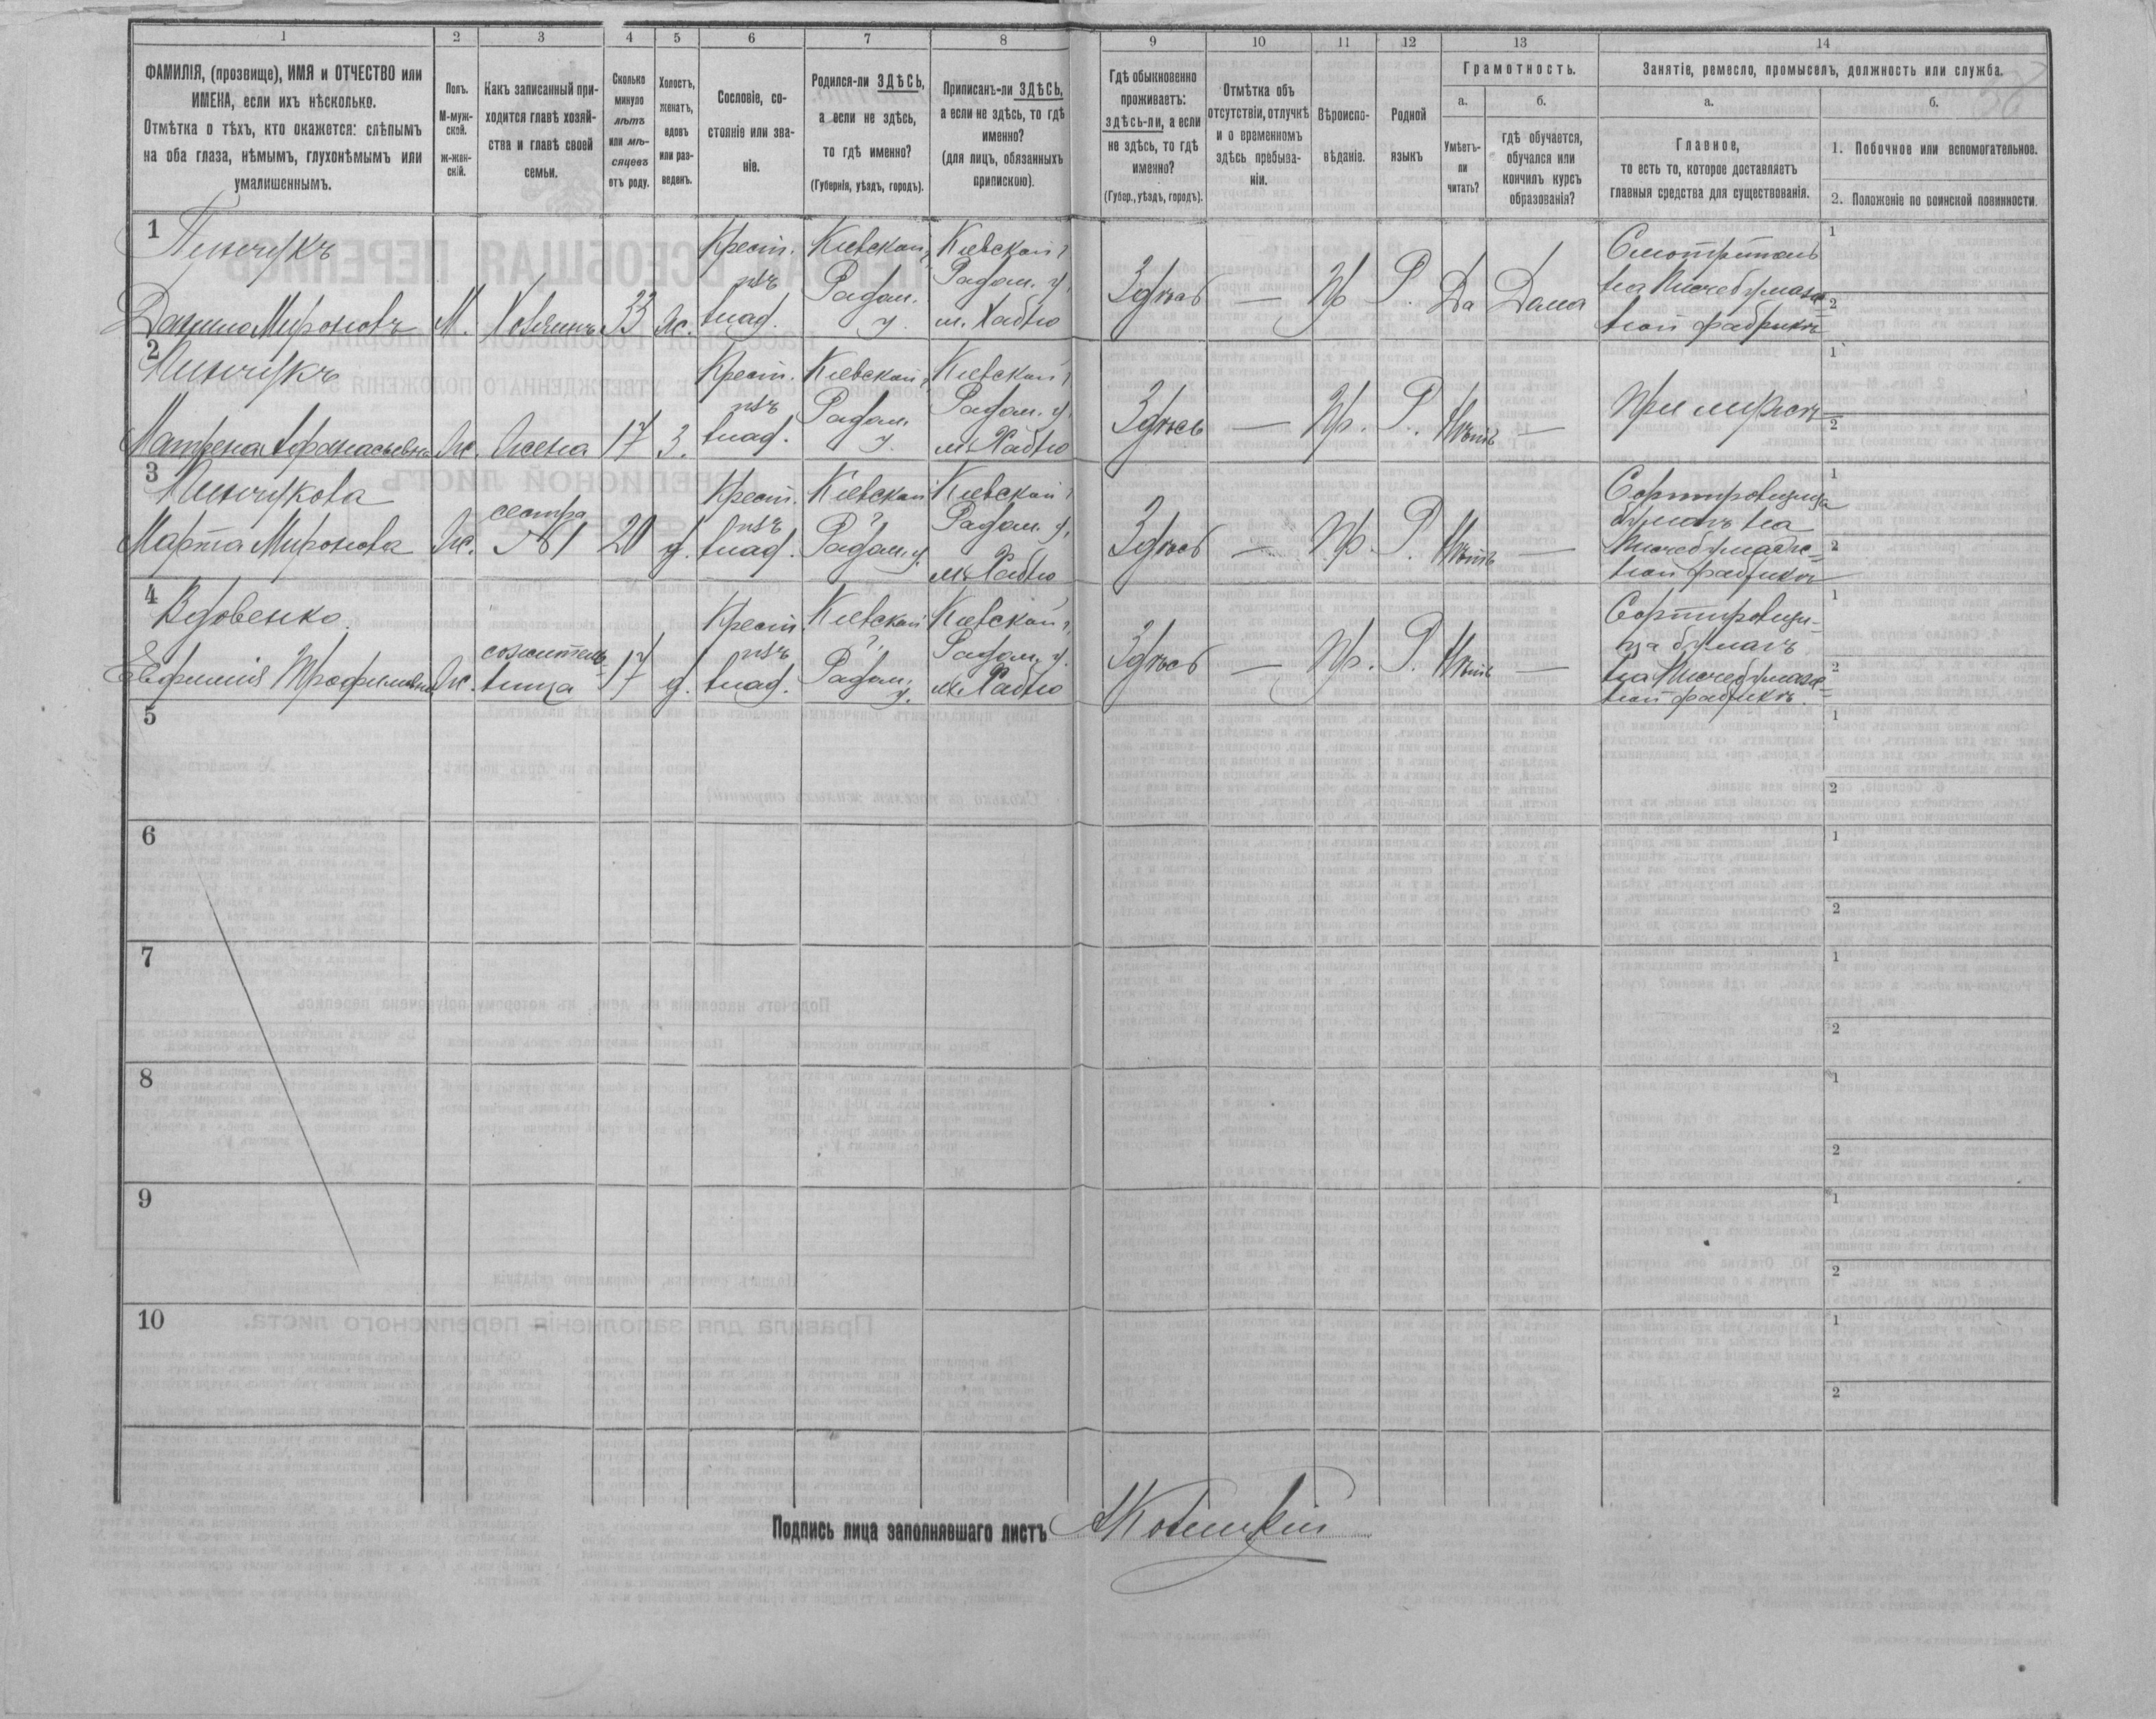 1 2 3 4 5 6 7 8 9 10 11 12 13 14
ФАМИЛІЯ, (прозвище), ИМЯ и ОТЧЕСТВО или
ИМЕНА, если ихъ нѣсколько.
Отмѣтка о тѣхъ, кто окажется: слѣпымъ
на оба глаза, нѣмымъ, глухонѣмымъ или
умалишеннымъ.
Полъ.
М-муж-
ской.
ж-жен-
скій.
Какъ записанный при-
ходится главѣ хозяй-
ства и главѣ своей
семьи.
Сколько
минуло
лѣтъ
или мѣ-
сяцевъ
отъ роду.
Холостъ,
женатъ,
вдовъ
или раз-
веденъ.
Сословіе, со-
стояніе или зва-
ніе.
Родился-ли ЗДѢСЬ,
а если не здѣсь,
то гдѣ именно?
(Губернія, уѣздъ, городъ).
Приписанъ-ли ЗДѢСЬ,
а если не здѣсь, то гдѣ
именно?
(для лицъ, обязанныхъ
припискою).
Гдѣ обыкновенно
проживаетъ:
здѣсь-ли, а если
не здѣсь, то гдѣ
именно?
(Губер., уѣздъ, городъ).
Отмѣтка объ
отсутствіи, отлучкѣ
и о временномъ
здѣсь пребыва-
ніи.
Вѣроиспо-
вѣданіе.
Родной
языкъ
Грамотность.
а.
Умѣетъ-
ли
читать?
б.
гдѣ обучается,
обучался или
кончилъ курсъ
образованія?
Занятіе, ремесло, промыселъ, должность или служба.
а.
Главное,
то есть то, которое доставляетъ
главныя средства для существованія.
б.
1. Побочное или вспомогательное.
2. Положеніе по воинской повинности.
1
Пинчукъ
Данило Мироновъ М. Хозяинъ 33 ж.
Крест.
изъ
влад.
Кіевской г.
Радом.
у.
Кіевской г.
Радом. у.
м. Хабно
Здѣсь — Пр Р. Да Дома
Смотритель
на Писчебумаж-
ной фабрикѣ
1
2
2
Пинчукъ
Матрена Афанасьевна Ж. Жена 17 з.
Крест.
изъ
влад.
Кіевской г.
Радом.
у.
Кіевской г.
Радом. у.
м. Хабно
Здѣсь — Пр. Р. Нѣтъ —
При мужѣ
1
2
3
Пинчукова
Марта Миронова Ж.
сестра
№1 20 д.
Крест.
изъ
влад.
Кіевской
г.
Радом. у.
Кіевской г.
Радом. у.
м. Хабно
Здѣсь — Пр. Р. Нѣтъ —
Сортировщица
бумагъ на
Писчебумаж-
ной фабрикѣ
1
2
4
Вдовенко
Евфимія Трофимовна Ж.
сожитель-
ница 17 д.
Крест.
изъ
влад.
Кіевской
г.
Радом.
у.
Кіевской г.
Радом. у.
м. Хабно
Здѣсь — Пр. Р. Нѣтъ —
Сортировщи-
ца бумагъ
на Писчебумаж-
ной фабрикѣ.
1
2
5 1
2
6 1
2
7 1
2
8 1
2
9 1
2
10 1
2
Подпись лица заполнявшаго листъ